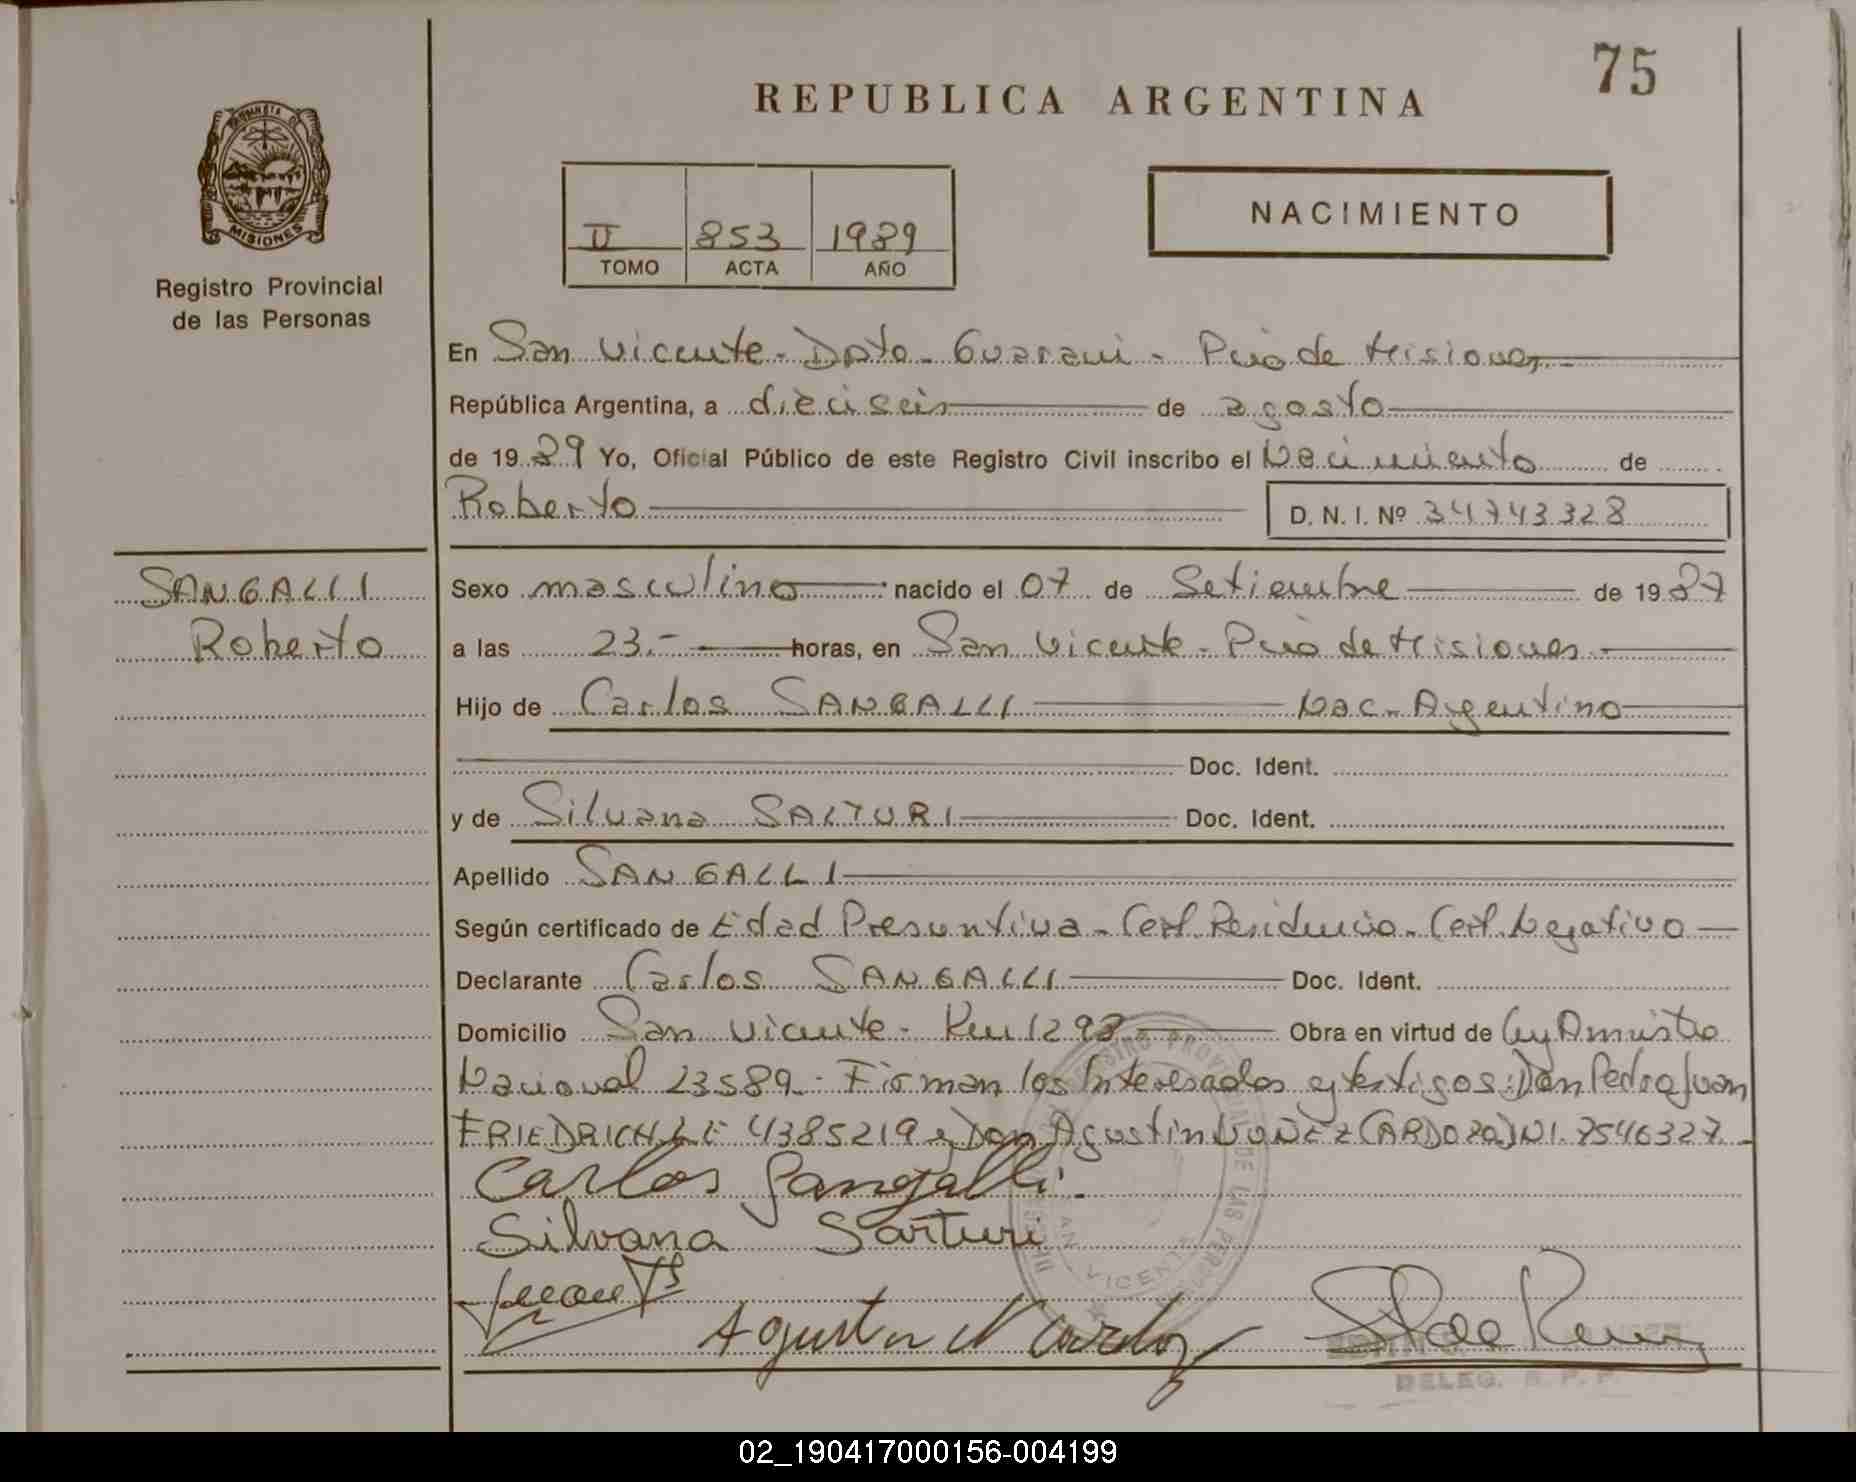 75
REPUBLICA ARGENTINA
PROVINCIA DE
MISIONES
Registro Provincial
de las Personas
II 853 1989
TOMO ACTA AÑO
NACIMIENTO
En San Vicente - Dpto - Guarani - Pcia de Misiones
República Argentina, a dieciseis de agosto
de 1989 Yo, Oficial Público de este Registro Civil inscribo el Nacimiento de
Roberto
D. N. I. Nº 34743328
SANGALLI
Roberto
Sexo masculino nacido el 07 de Setiembre de 1987
a las 23.- horas, en San Vicente - Pcia de Misiones
Hijo de Carlos SANGALLI Nac - Argentino
Doc. Ident.
y de Silvana SALTURI Doc. Ident.
Apellido SANGALLI
Según certificado de Edad Presuntiva - Cert. Residencia - Cert. Negativo
Declarante Carlos SANGALLI Doc. Ident.
Domicilio San Vicente - Km 1298 Obra en virtud de Ley Amnistia
Nacional 23589 - Firman los Interesados y testigos: Don Pedro Juan
FRIEDRICH L E 4385219 y Don Agustin NUÑEZ (CARDOZO) NI. 7546327
Carlos Sangalli
Silvana Sarturi
Agustin N Cardozo
DELEG. R. P. P.
02_190417000156-004199